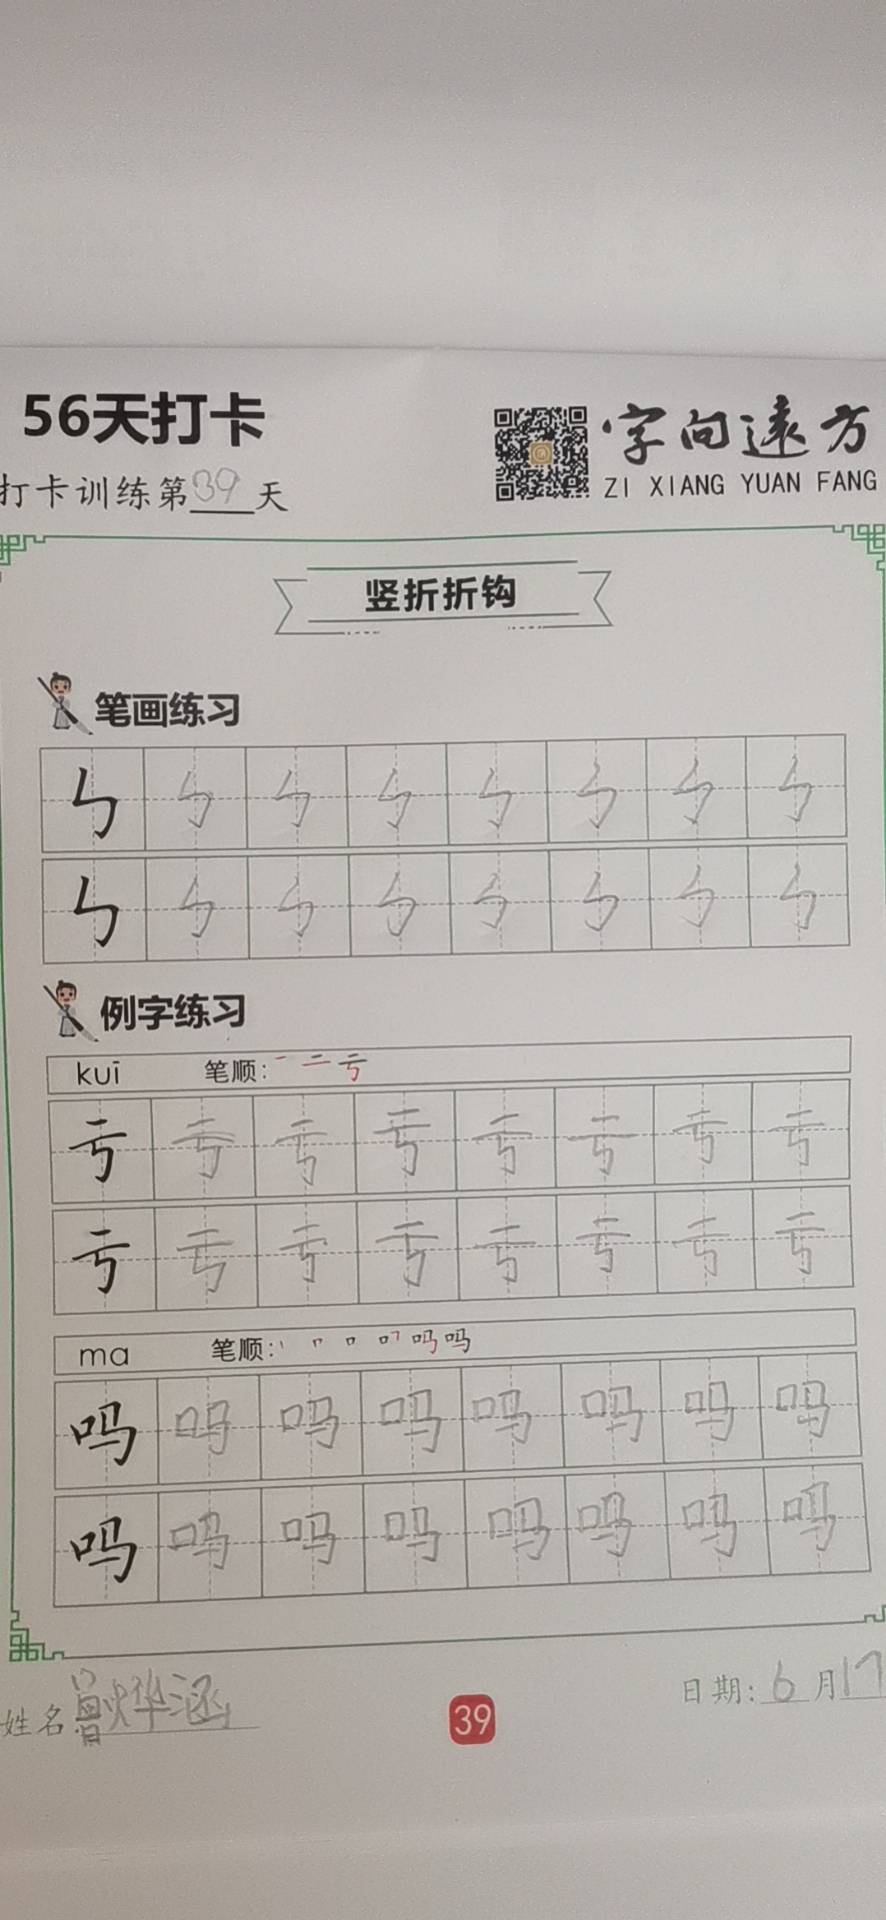 56天打卡
字向遠方
ZI XIANG YUAN FANG
打卡训练第39天
竖折折钩
笔画练习
ㄣ ㄣ ㄣ ㄣ ㄣ ㄣ ㄣ ㄣ
ㄣ ㄣ ㄣ ㄣ ㄣ ㄣ ㄣ ㄣ
例字练习
kuī 笔顺: 一 二 亏
亏 亏 亏 亏 亏 亏 亏 亏
亏 亏 亏 亏 亏 亏 亏 亏
ma 笔顺: 丨 冂 口 吗 吗
吗 吗 吗 吗 吗 吗 吗 吗
吗 吗 吗 吗 吗 吗 吗 吗
姓名 曾烨涵
39
日期: 6月17